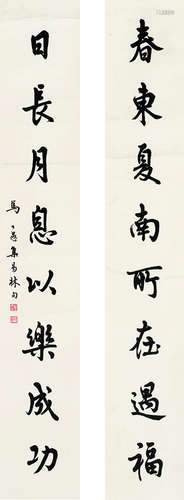 春東夏南所在遇福
日長月息以樂成功
馬公愚集易林句